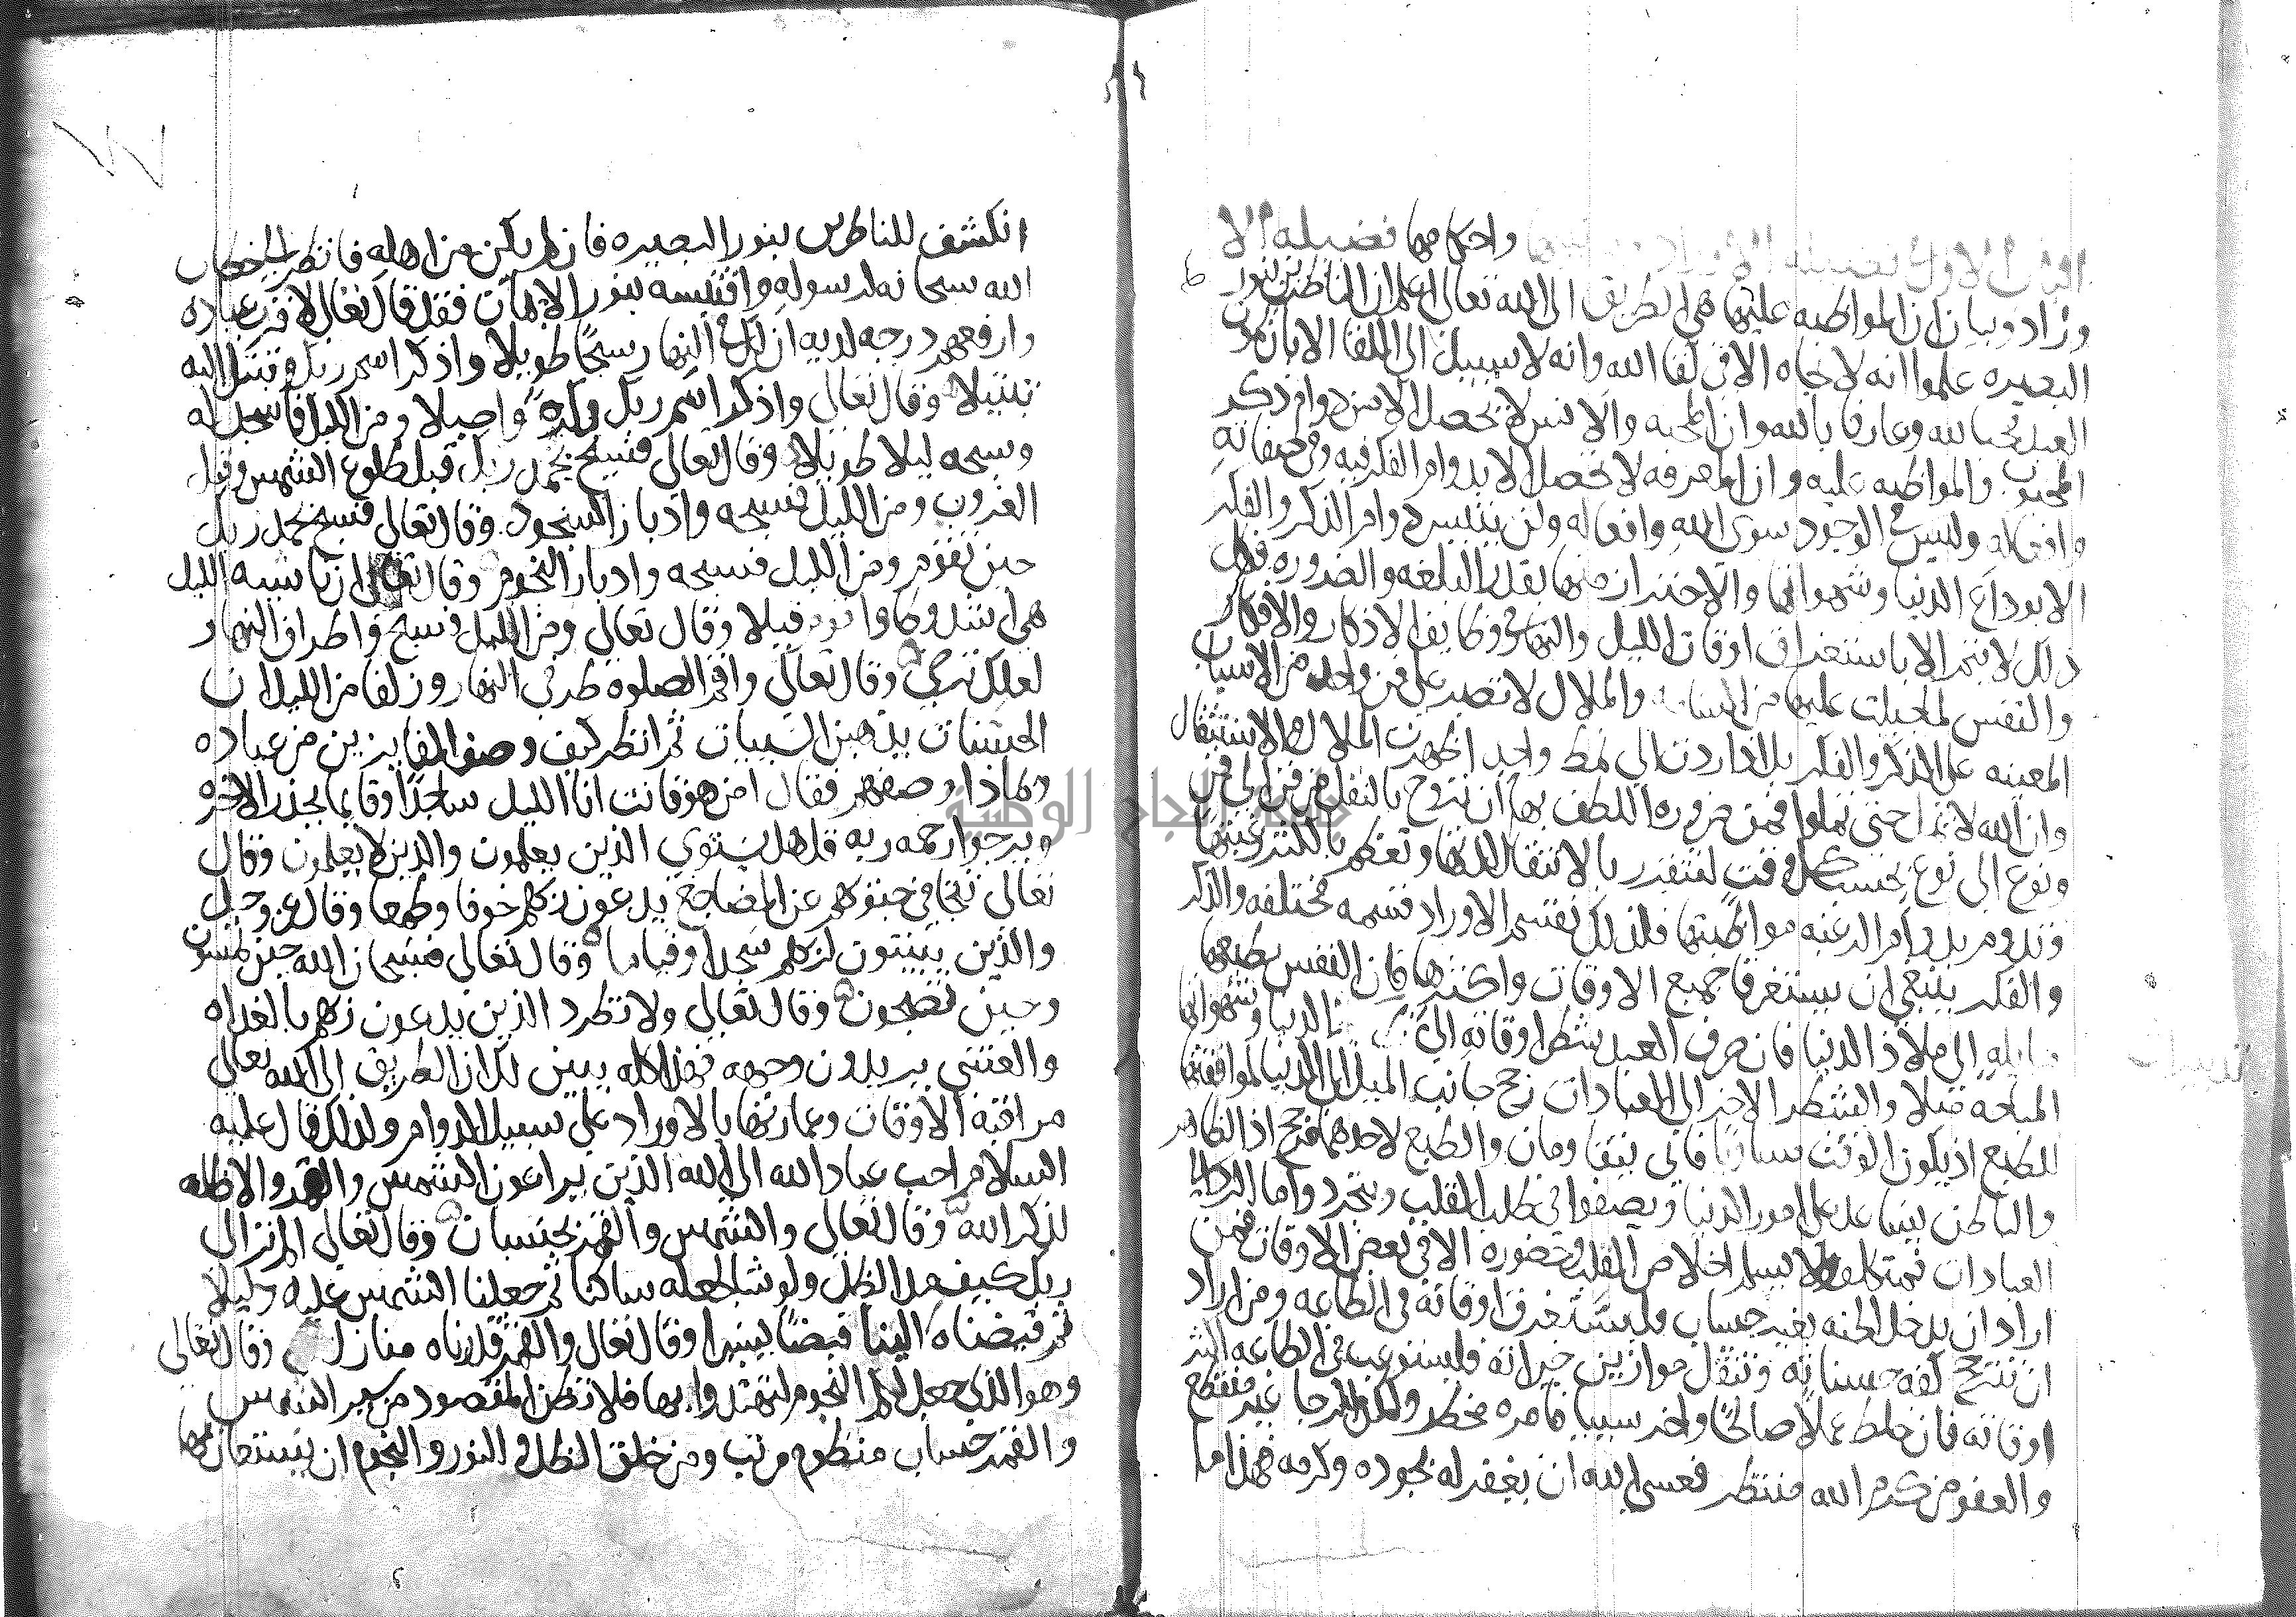 الباب الاول فضيله الاوراد وترتيبها واحكامها فضيله الا
وراد وبيان ان المواظبه عليها هي الطريق الى الله تعالى اعلم ان الناظرين بنور
البصيره علموا انه لا نجاه الا في لقا الله وانه لا سبيل الى اللقا الا بان يموت
العبد محبا لله وعارفا بالله وان المحبه والانس لا تحصل الا من دوام ذكر
المحبوب والمواظبه عليه وان المعرفه لا تحصل الا بدوام الفكر فيه وفي صفاته
وافعاله وليس في الوجود سوى الله وافعاله ولن يتيسر دوام الذكر والفكر
الا بوداع الدنيا وشهواتها والاجتزا منها بقدر البلغه والضروره وكل
ذلك لا يتم الا باستغراق اوقات الليل والنهار في وظايف الاذكار والافكار
والنفس لما جبلت عليها من السامه والملال لا تصبر على فن واحد من الاسباب
المعينه على الذكر والفكر بل اذا ردت الى نمط واحد اظهرت الملال والاستثقال
وان الله لا يمل حتى تملوا فمن ضروره اللطف بها ان تروح بالتنقل من فن الى فن
ونوع الى نوع بحسب كل وقت لتغزر بالانتقال لذتها وتعظم باللذه رغبتها
وتدوم بدوام الرغبه مواظبتها فلذلك تقسم الاوراد قسمه مختلفه والذكر
والفكر ينبغي ان يستغرقا جميع الاوقات واكثرها فان النفس بطبعها
مايله الى ملاذ الدنيا فان صرف العبد شطر اوقاته الى الدنيا وشهواتها
المباحه مثلا والشطر الاخر الى العبادات رجح جانب الميل الى الدنيا لموافقتها
للطبع اذ يكون الوقت متساويا فاني يتقاومان والطبع لاحدهما مرجح اذ الظاهر
والباطن يتساعد على امور الدنيا ويصفوا في طلبها القلب ويتجرد واما الرد الى
العبادات فمتكلف ولا يسلم اخلاص القلب وحضوره الا في بعض الاوقات فمن
اراد ان يدخل الجنه بغير حساب فليستغرق اوقاته في الطاعه ومن اراد
ان تترجح كفه حسناته وتثقل موازين خيراته فليستوعب في الطاعه اكثر
اوقاته فان خلط عملا صالحا واخر سييا فامره مخطر ولكن الرجا غير منقطع
والعفو من كرم الله منتظر فعسى الله ان يغفر له بجوده وكرمه فهذا ما
انكشف للناظرين بنور البصيره فان لم يكن من اهله فانظر الى خطاب
الله سبحانه لرسوله واقتبسه بنور الايمان فقد قال تعالى لاقرب عباده
وارفعهم درجه لديه ان لك في النهار سبحا طويلا واذكر اسم ربك وتبتل اليه
تبتيلا وقال تعالى واذكر اسم ربك بكره واصيلا ومن الليل فاسجد له
وسبحه ليلا طويلا وقال تعالى فسبح بحمد ربك قبل طلوع الشمس وقبل
الغروب ومن الليل فسبحه وادبار السجود وقال تعالى فسبح بحمد ربك
حين تقوم ومن الليل فسبحه وادبار النجوم وقال تعالى ان ناشيه الليل
هي اشد وطاوا قوم قيلا وقال تعالى ومن الليل فسبح واطراف النهار
لعلك ترضى وقال تعالى واقم الصلوه طرفي النهار وزلفا من الليل ان
الحسنات يذهبن السييات ثم انظر كيف وصف الفايزين من عباده
وبماذا وصفهم فقال امن هو قانت انا الليل ساجدا وقايما يحذر الاخره
ويرجوا رحمه ربه قل هل يستوي الذين يعلمون والذين لا يعلمون وقال
تعالى تتجافى جنوبهم عن المضاجع يدعون ربهم خوفا وطمعا وقال عز وجل
والذين يبيتون لربهم سجدا وقياما وقال تعالى فسبحان الله حين تمسون
وحين تصبحون وقال تعالى ولا تطرد الذين يدعون ربهم بالغداه
والعشي يريدون وجهه فهذا كله يبين لك ان الطريق الى الله تعالى
مراقبه الاوقات وعمارتها بالاوراد على سبيل الدوام ولذلك قال عليه
السلام احب عباد الله الى الله الذين يراعون الشمس والقمر والاظله
لذكر الله وقال تعالى والشمس والقمر بحسبان وقال تعالى الم تر الى
ربك كيف مد الظل ولو شا لجعله ساكنا ثم جعلنا الشمس عليه دليلا
ثم قبضناه الينا قبضا يسيرا وقال تعالى والقمر قدرناه منازل وقال تعالى
وهو الذي جعل لكم النجوم لتهتدوا بها فلا تظن المقصود من سير الشمس
والقمر حساب منظوم مرتب ومن خلق الظل والنور والنجوم ان يستعان بها